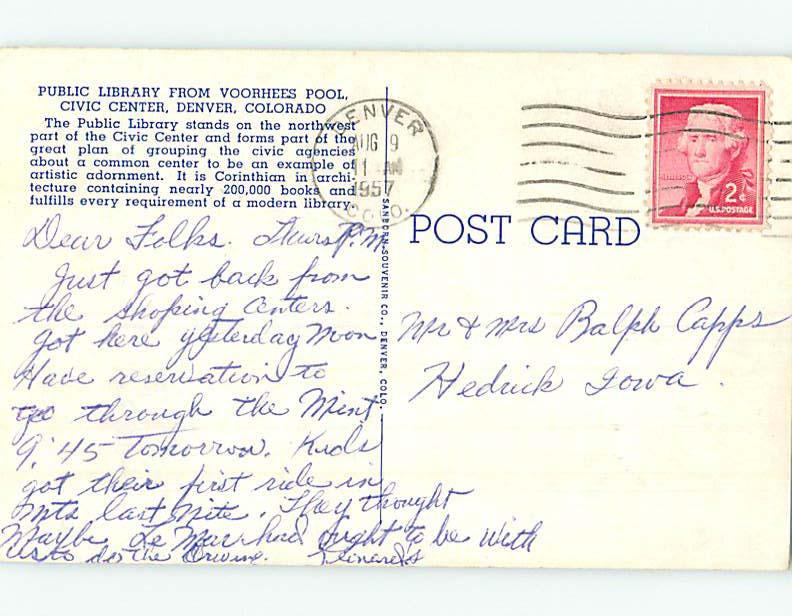 PUBLIC LIBRARY FROM VOORHEES POOL,
CIVIC CENTER, DENVER, COLORADO
The Public Library stands on the northwest
part of the Civic Center and forms part of the
great plan of grouping the civic agencies
about a common center to be an example of
artistic adornment. It is Corinthian in archi-
tecture containing nearly 200,000 books and
fulfills every requirement of a modern library.
DENVER
AUG 9
11 AM
1957
COLO.
2¢
U.S. POSTAGE
POST CARD
SANBORN SOUVENIR CO., DENVER, COLO.
Dear Folks. Thurs P.M.
Just got back from
the shoping Centers.
Got here yesterday Noon
Have reservation to
go through the Mint
9:45 Tomorrow. Kids
got their first ride in
Mts last nite. They thought
Maybe Le ought to be with
us to do the Driving.
Mr & Mrs Ralph Capps
Hedrick Iowa.